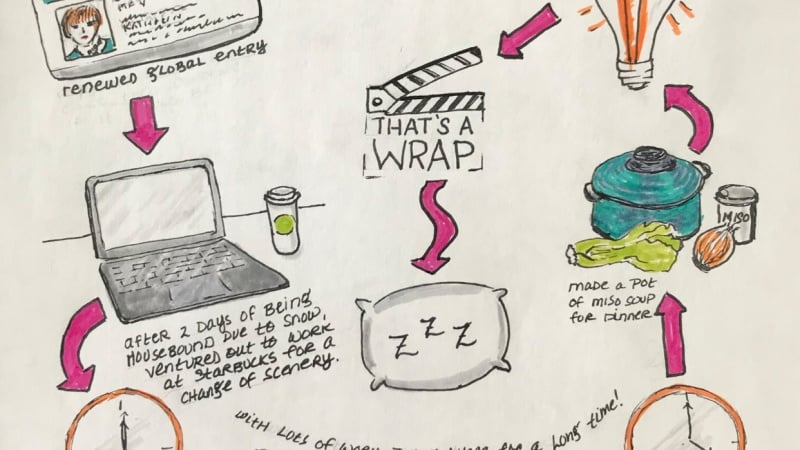 MAY
KATHRYN
renewed global entry
THAT'S A
WRAP
MISO
made a pot
of miso soup
for dinner
after 2 days of being
housebound due to snow,
ventured out to work
at Starbucks for a
change of scenery.
Z Z Z
with lots of
for a long time!